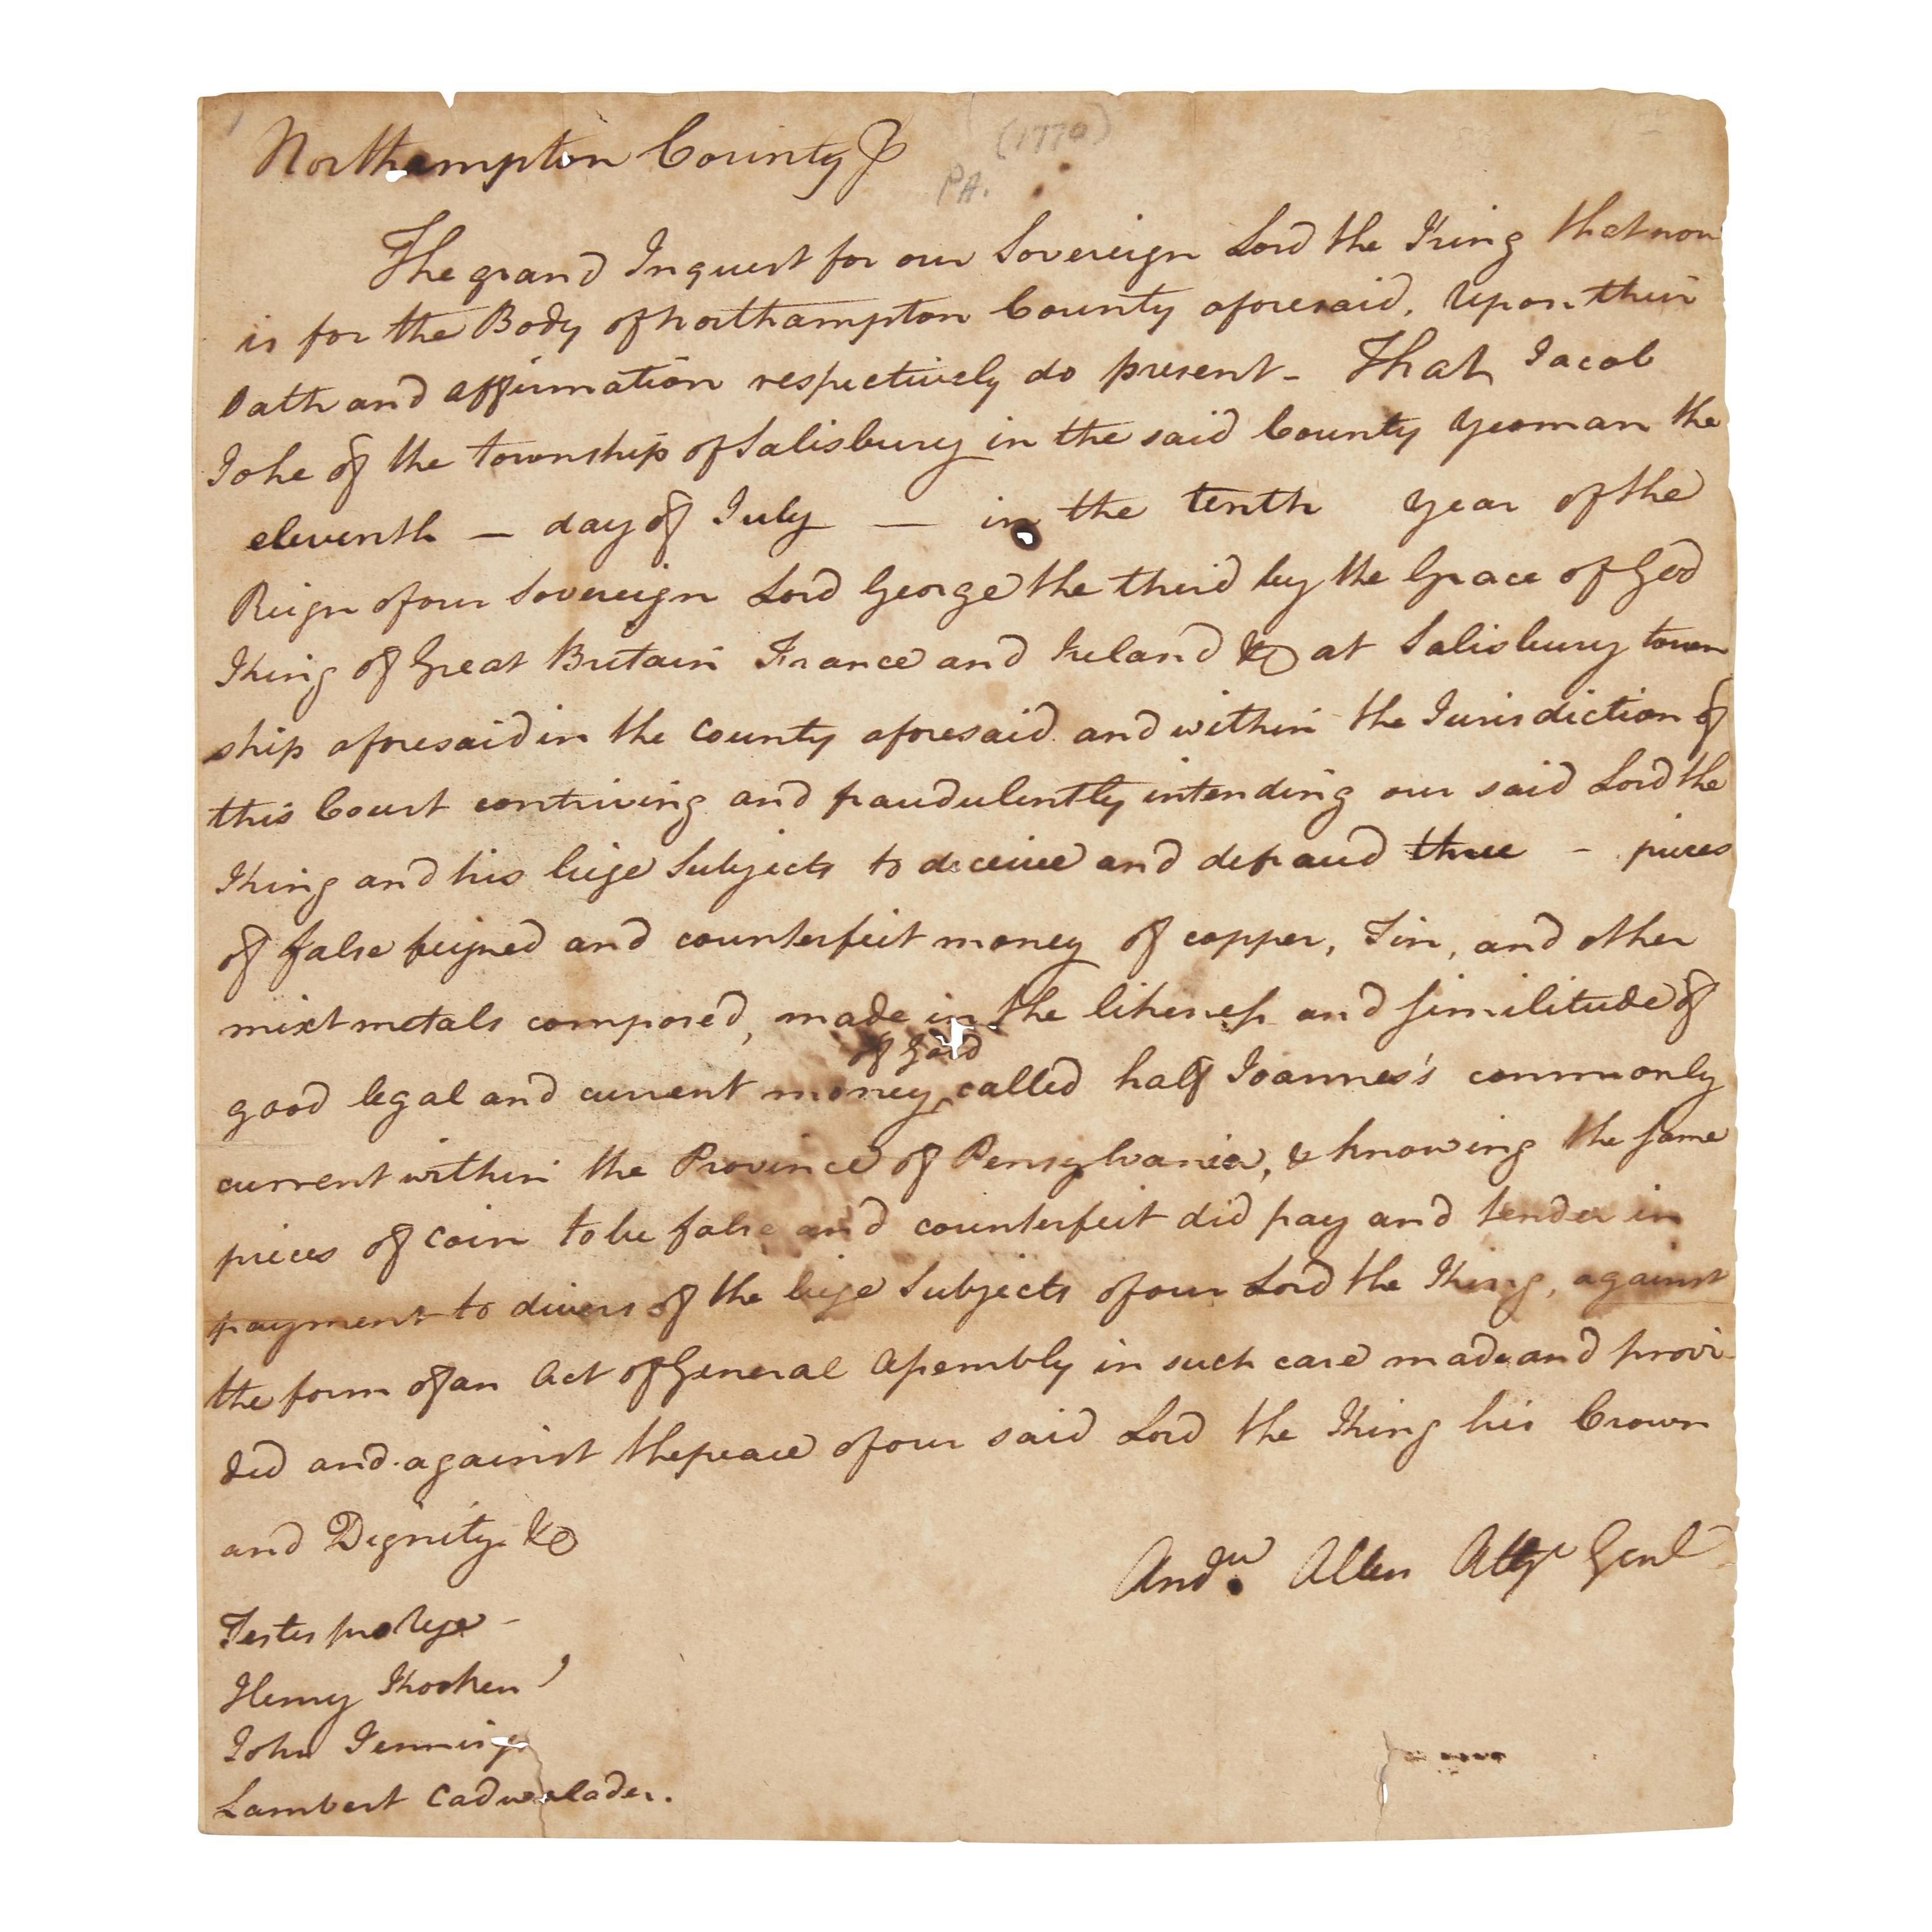 Northampton County ss
(1770)
PA.
The grand Inquest for our Sovereign Lord the King that now
is for the Body of Northampton County aforesaid, Upon their
Oath and affirmation respectively do present - That Jacob
Johe of the township of Salisbury in the said County Yeoman the
eleventh — day of July — in the tenth Year of the
Reign of our Sovereign Lord George the third by the Grace of God
King of Great Britain France and Ireland &c at Salisbury town
ship aforesaid in the County aforesaid and within the Jurisdiction of
this Court contriving and fraudulently intending our said Lord the
King and his liege Subjects to deceive and defraud three - pieces
of false feigned and counterfeit money of copper, Tin, and other
mixt metals composed, made in the likeness and similitude of
of Gold
good legal and current money ^ called half Joannes's commonly
current within the Province of Pensylvania, & knowing the same
pieces of Coin to be false and counterfeit did pay and tender in
payment to divers of the liege Subjects of our Lord the King, against
the form of an Act of General Assembly in such case made and provi
ded and against the peace of our said Lord the King his Crown
and Dignity &c
Andw. Allen Atty Genl
Testes pro Rege -
Henry Kooken
John Jennings
Lambert Cadwalader.